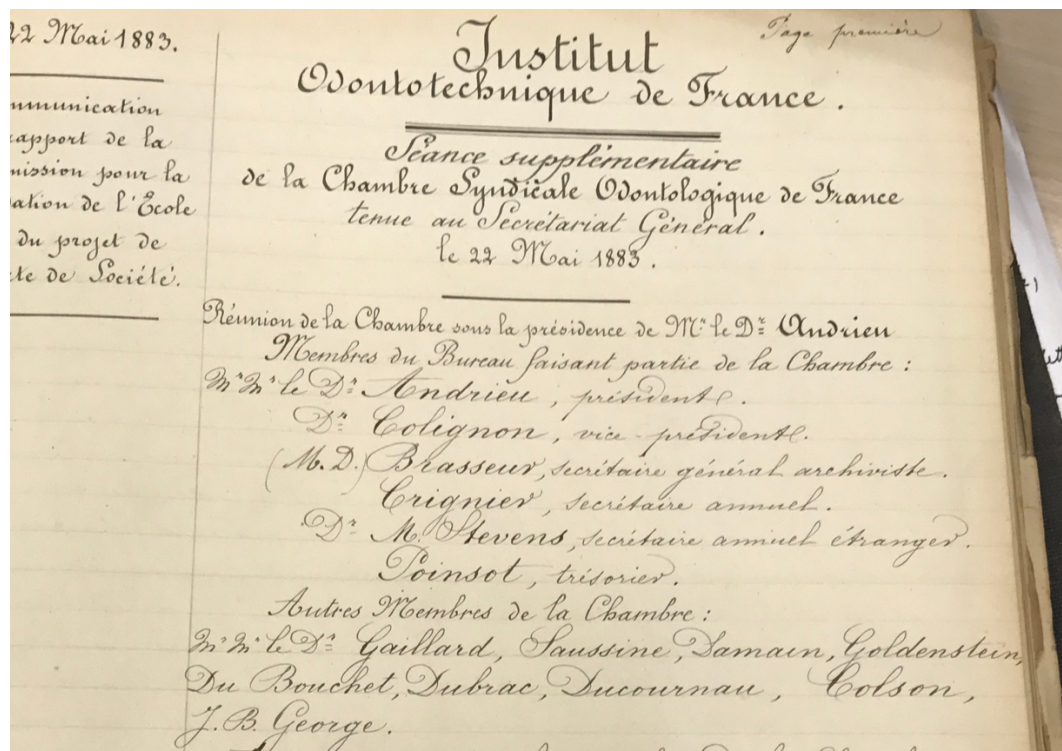 22 Mai 1883.
mmunication
rapport de la
mission pour la
ation de l'École
du projet de
cte de Société.
Page première
Institut
Odontotechnique de France.
Séance supplémentaire
de la Chambre Syndicale Odontologique de France
tenue au Secrétariat Général.
le 22 Mai 1883.
Réunion de la Chambre sous la présidence de Mr le Dr Andrieu
Membres du Bureau faisant partie de la Chambre :
Mr Mr le Dr Andrieu, président.
Dr Colignon, vice-président.
(M.D.) Brasseur, secrétaire général archiviste.
Crignier, secrétaire annuel.
Dr M. Stevens, secrétaire annuel étranger.
Poinsot, trésorier.
Autres Membres de la Chambre :
Mr Mr le Dr Gaillard, Saussine, Damain, Goldenstein,
Du Bouchet, Dubrac, Ducournau, Colson,
J. B. George.